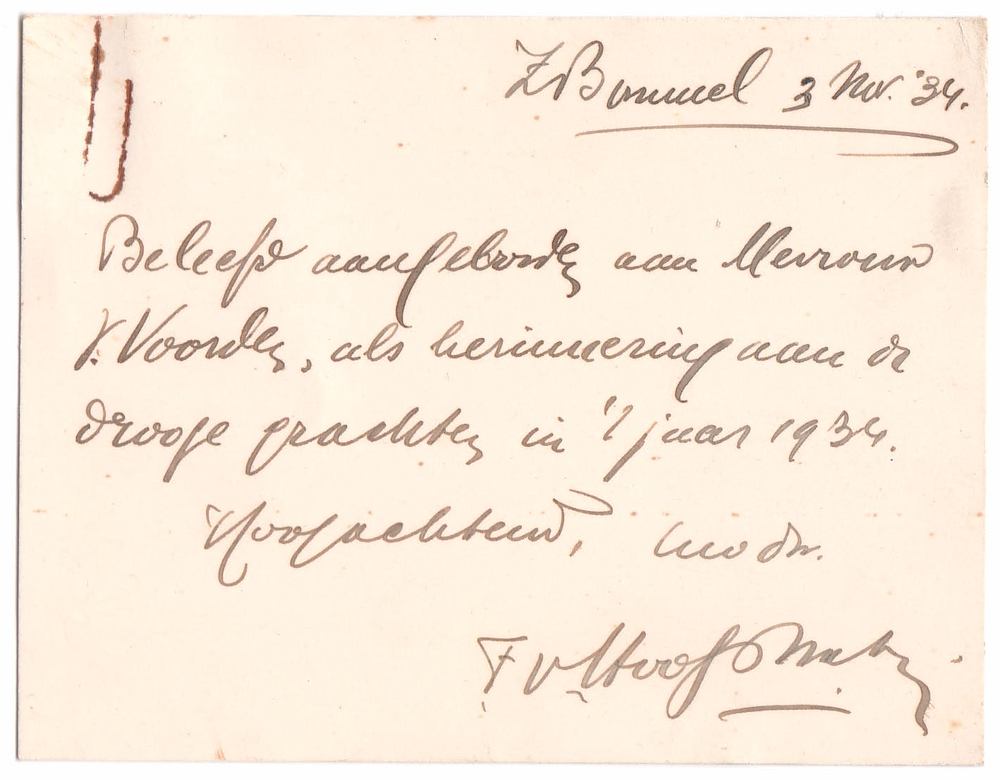 Z.Bommel 3 Nov. '34.
Beleefd aangeboden aan Mevrouw
v. Voorden, als herinnering aan de
droge grachten in 't jaar 1934.
Hoogachtend,
F v